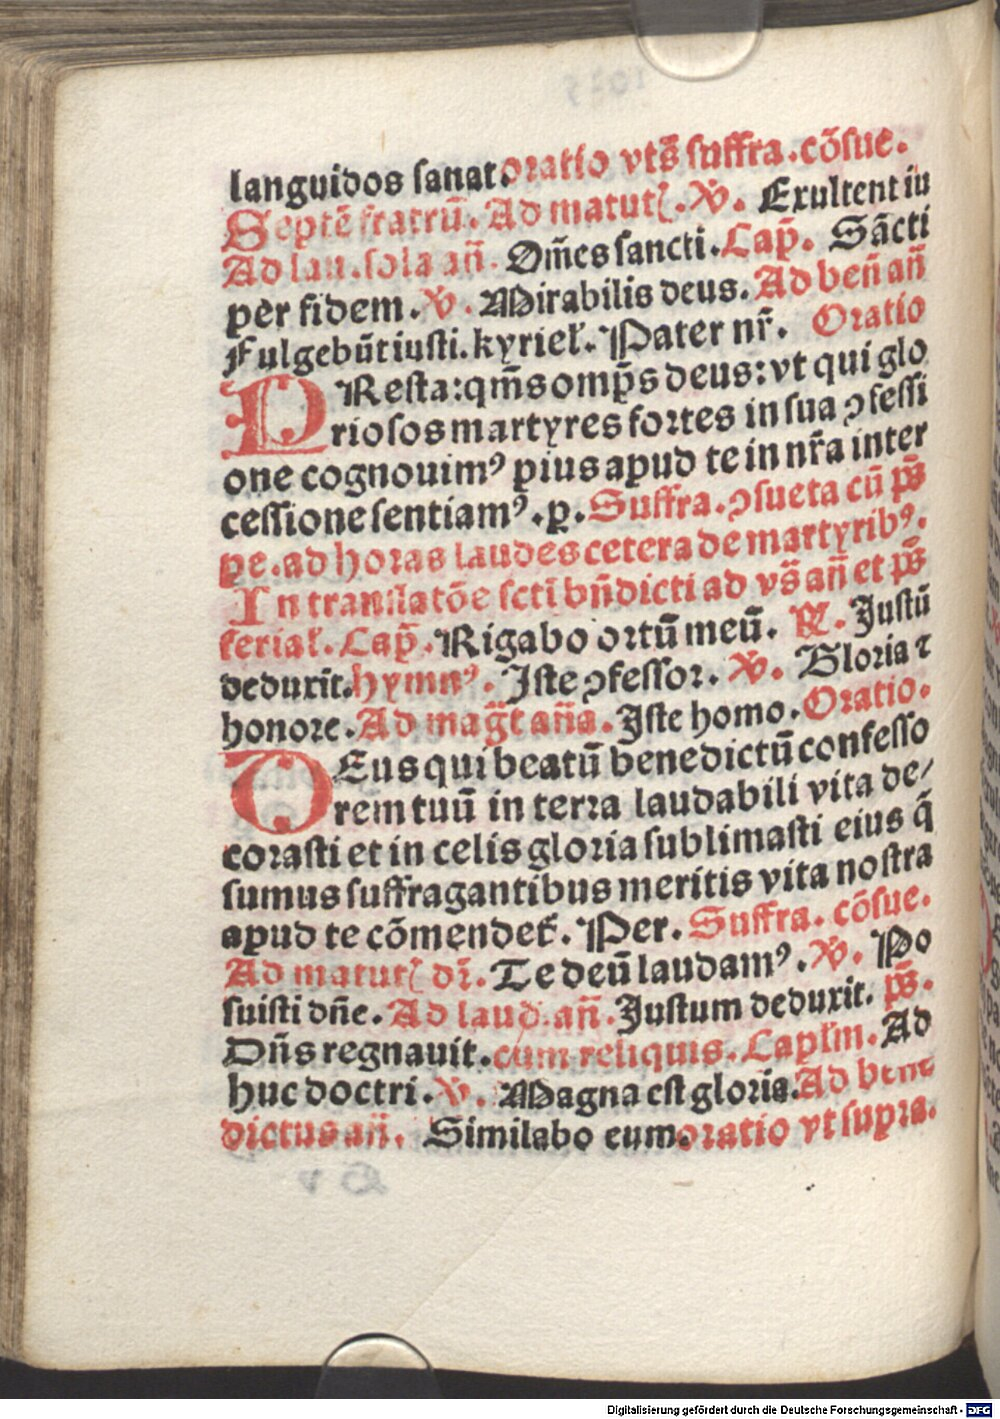 languidos sanat. oratio vts̄ suffra. cōsue.
Septē fratrū. Ad matutꝭ. ℣. Exultent iu
Ad lau. sola añ. Om̄es sancti. Cap̄. Sācti
per fidem. ℣. Mirabilis deus. Ad beñ añ
Fulgebūt iusti. kyrieł. Pater nr̄. Oratio
PResta: qm̄s omp̄s deus: vt qui glo
riosos martyres fortes in sua ↄfessi
one cognouimꝰ pius apud te in nr̄a inter
cessione sentiamꝰ. p. Suffra. ↄsueta cū ps̄
pe. ad horas laudes cetera de martyribꝰ.
In translatōe scti bn̄dicti ad vs̄ añ et ps̄
feriał. Cap̄. Rigabo ortū meū. ℟. Justū
deduxit. hymnꝰ. Iste ↄfessor. ℣. Gloria ⁊
honore. Ad magt̄ aña. Iste homo. Oratio.
DEus qui beatū benedictū confesso
rem tuū in terra laudabili vita de/
corasti et in celis gloria sublimasti eius q̄
sumus suffragantibus meritis vita nostra
apud te cōmendet̄. Per. Suffra. cōsue.
Ad matutꝭ dr̄. Te deū laudamꝰ. ℣. Po
suisti dn̄e. Ad laud. añ. Justum deduxit. ps̄.
Dn̄s regnauit. cum reliquis. Capłm. Ad
huc doctri. ℣. Magna est gloria. Ad bene
dictus añ. Similabo eum. oratio vt supra.
Digitalisierung gefördert durch die Deutsche Forschungsgemeinschaft - DFG